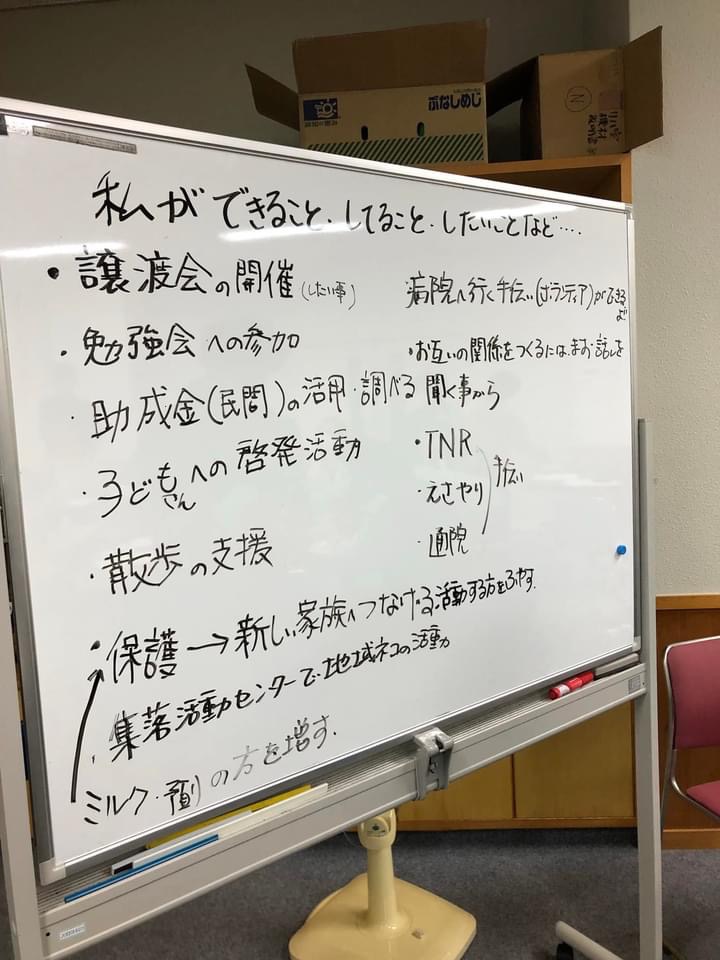 ぶなしめじ
N
私ができること、してること、したいことなど‥‥
・譲渡会の開催(したい事)
・勉強会への参加
・助成金(民間)の活用・調べる
・子どもさんへの啓発活動
・散歩の支援
・保護→新しい家族へつなげる活動する方をふやす.
・集落活動センターで地域ネコの活動
ミルク・預りの方を増す.
病院へ行く手伝い(ボランティア)ができるよ
・お互いの関係をつくるには、まず話しを
聞く事から
・TNR
・えさやり
・通院
手伝い